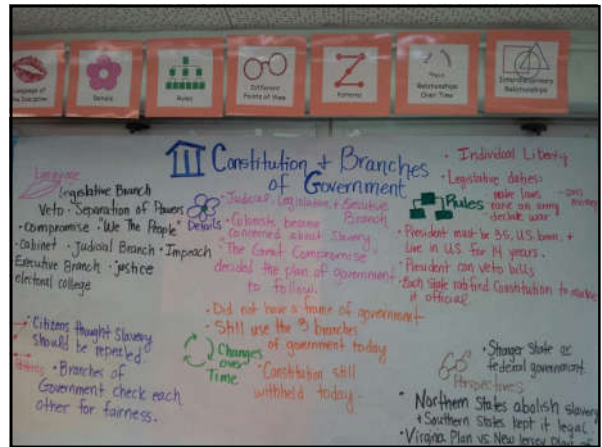 Language of the Discipline
Details
Rules
Different Points of View
Patterns
Relationships Over Time
Interdisciplinary Relationships
Constitution + Branches
of Government
Language
Legislative Branch
Veto · Separation of Powers
· compromise · "We The People"
· cabinet · Judicial Branch · Impeach
Executive Branch · justice
electoral college
Details
· Judicial, Legislative, + Executive
Branch
· Colonists became
concerned about slavery
· The Great Compromise
decided the plan of government
to follow.
· Individual Liberty
· Legislative duties:
make laws
raise an army
declare war
coin
money
Rules
· President must be 35, U.S. born, +
live in U.S. for 14 years.
· President can veto bills
· Each state ratified Constitution to make
it official
· Citizens thought Slavery
should be repealed.
Patterns
· Branches of
Government check each
other for fairness.
· Did not have a frame of government
· Still use the 3 branches
of government today
Changes
over
Time
· Constitution still
withheld today
· Stronger State or
federal government
Perspectives
· Northern States abolish slavery
+ Southern States kept it legal.
· Virginia Plan vs New Jersey Plan of